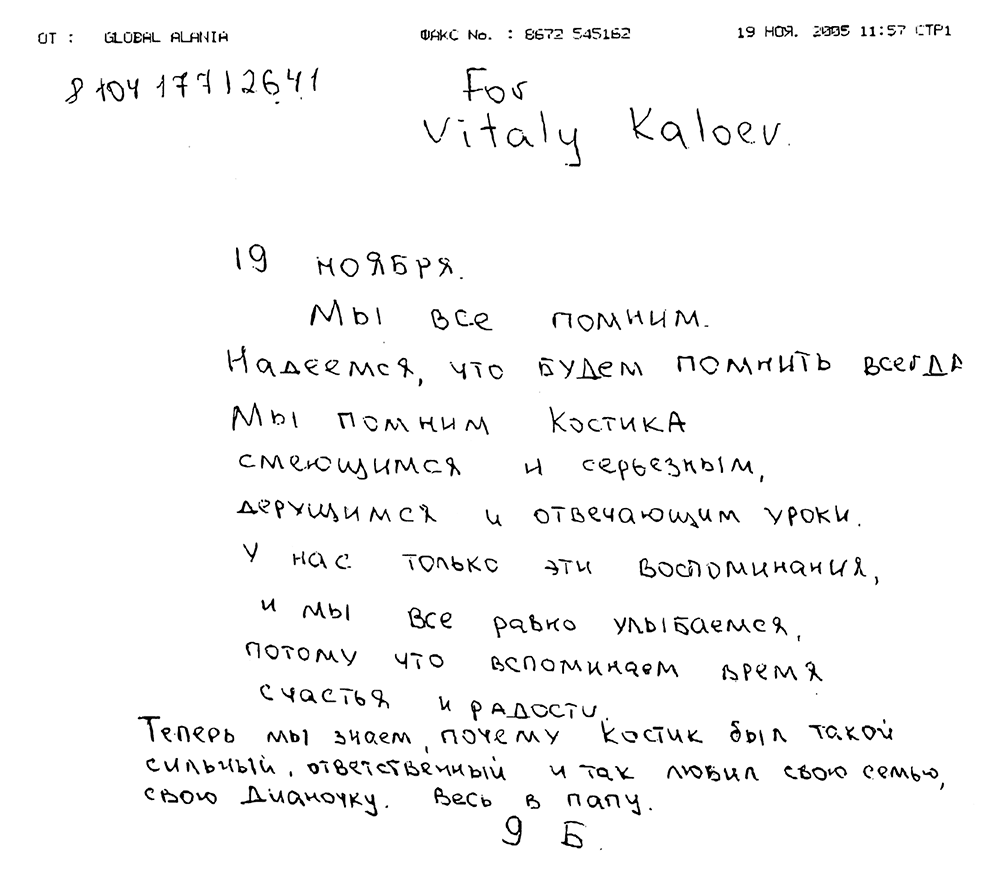 ОТ : GLOBAL ALANIA ФАКС No. : 8672 545162 19 НОЯ. 2005 11:57 СТР1
8 104 17712641 For
Vitaly Kaloev.
19 ноября.
Мы все помним.
Надеемся, что будем помнить всегда
Мы помним Костика
смеющимся и серьезным,
дерущимся и отвечающим уроки.
У нас только эти воспоминания,
и мы все равно улыбаемся,
потому что вспоминаем время
счастья и радости.
Теперь мы знаем, почему Костик был такой
сильный, ответственный и так любил свою семью,
свою Дианочку. Весь в папу.
9 Б.